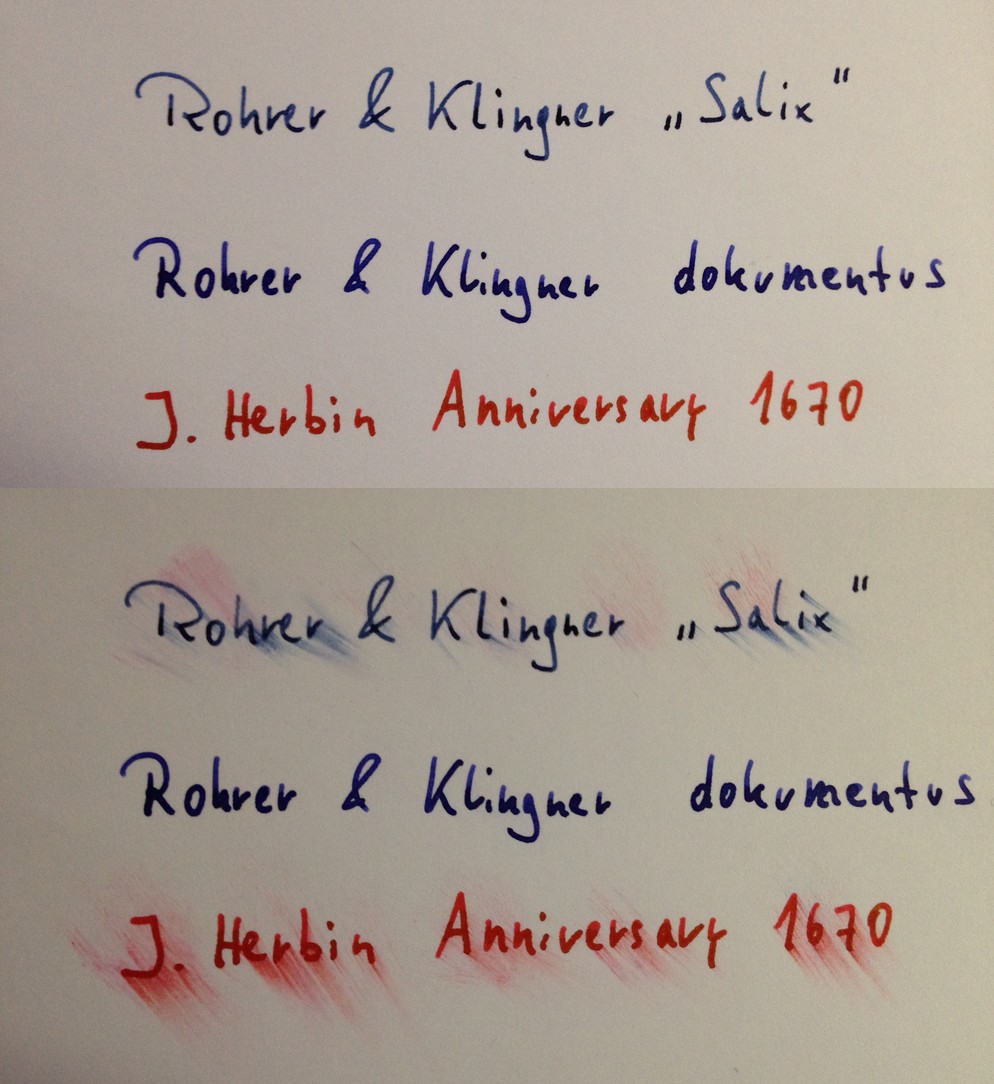 Rohrer & Klingner „Salix“
Rohrer & Klingner dokumentus
J. Herbin Anniversary 1670
Rohrer & Klingner „Salix“
Rohrer & Klingner dokumentus
J. Herbin Anniversary 1670